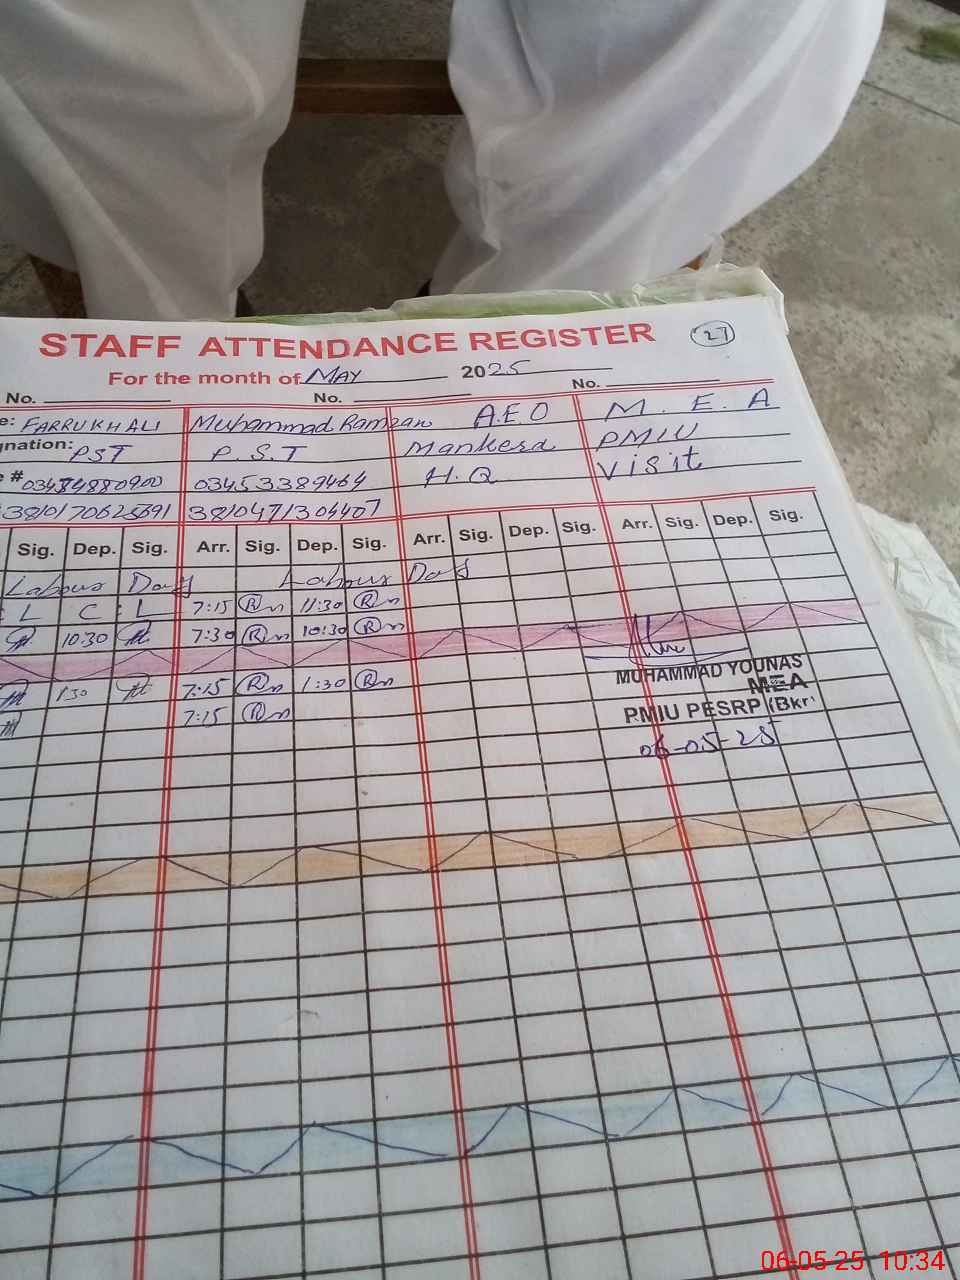 STAFF ATTENDANCE REGISTER 27
For the month of MAY 2025
No. No. No.
e: FARRUKH ALI Muhammad Ramzan A.E.O M.E.A
gnation: PST P.S.T Mankera PMIU
e # 03453389464 H.Q Visit
3810471304407
Sig. Dep. Sig. Arr. Sig. Dep. Sig. Arr. Sig. Dep. Sig. Arr. Sig. Dep. Sig.
Labour Day Labour Day
L C L 7:15 Rn 11:30 Rn
10:30 7:30 Rn 10:30 Rn
1:30 7:15 Rn 1:30 Rn
7:15 Rn
MUHAMMAD YOUNAS
MEA
PMIU PESRP (Bkr)
06-05-25
06-05-25 10:34